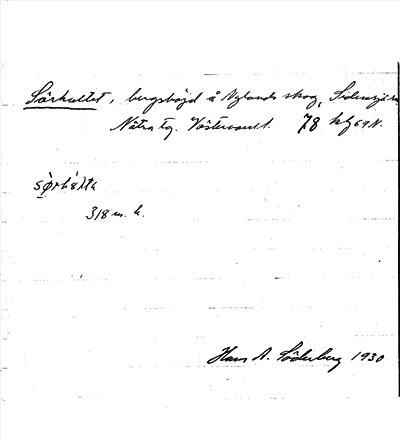 Sörhultet, bergshöjd å Nylands skog, Sidensjö
Nätra tg. Västernorrl. 78
318 m. h.
Hans A. Söderberg 1930